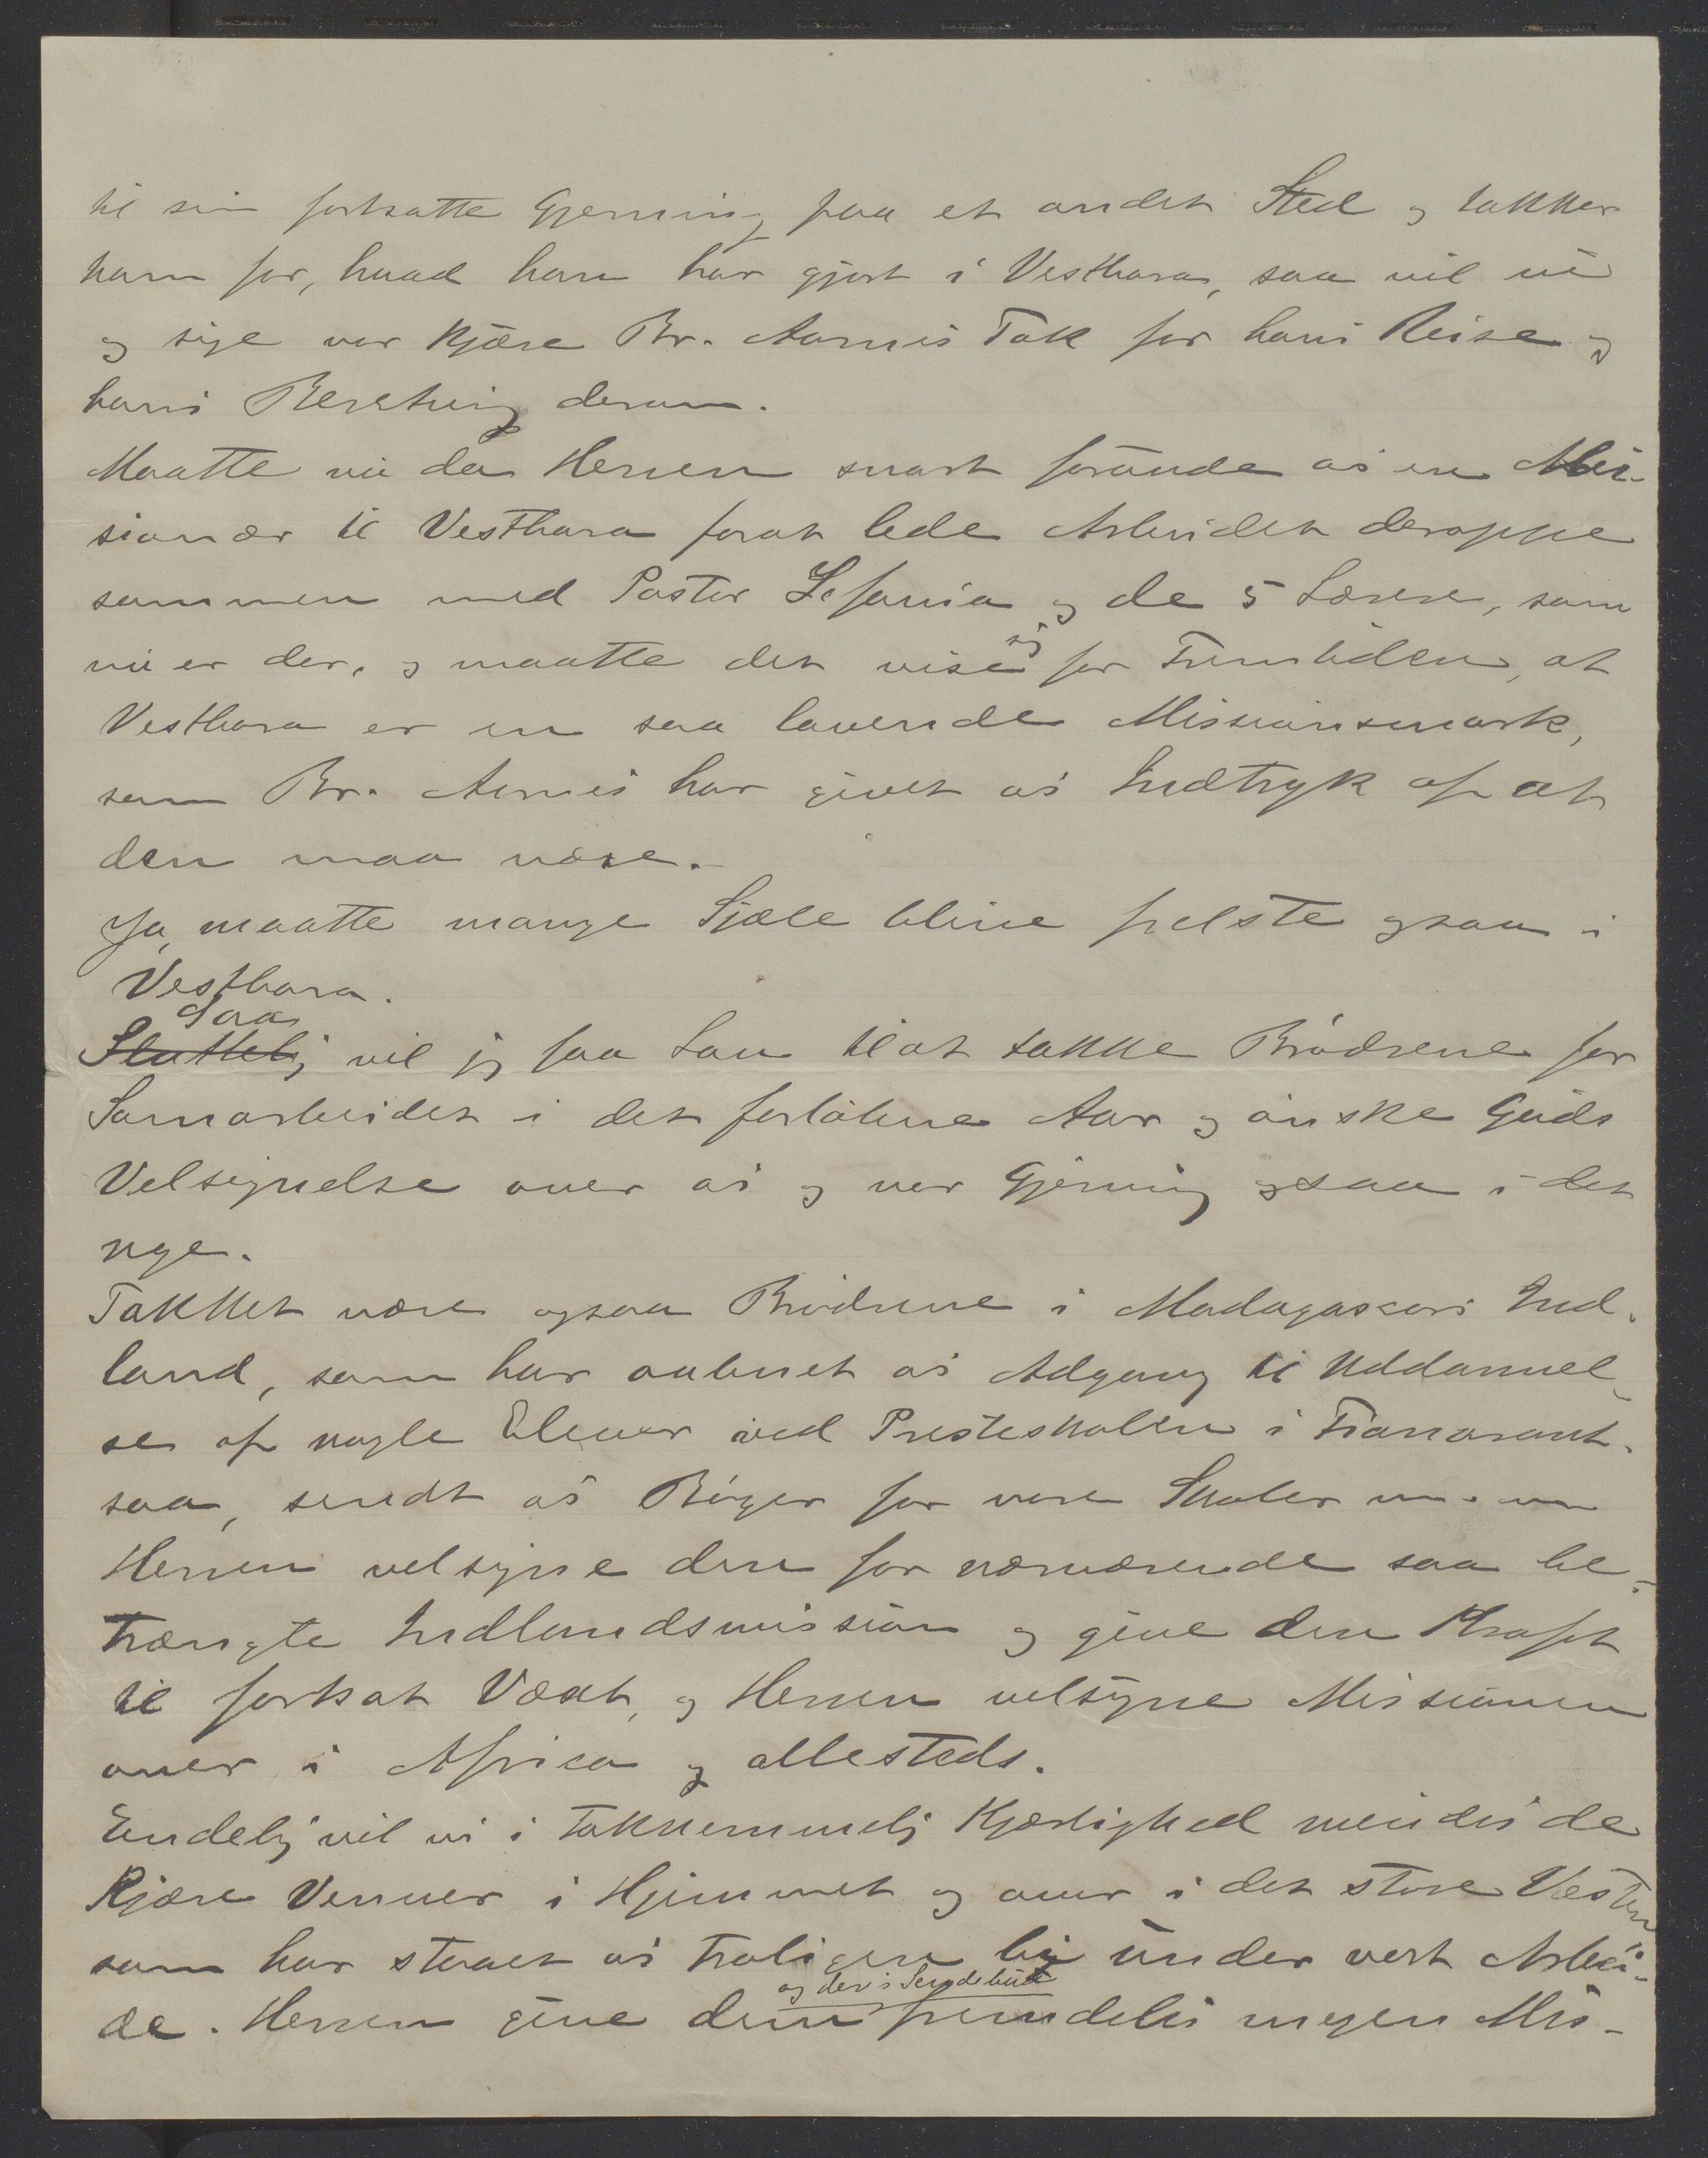 til sin fortsatte Gjerning paa et andet Sted og takker
ham for, hvad han har gjort i Vestbara, saa vil vi
og sige vor kjære Br. Aarnes Tak for hans Reise og
hans Beretning derom.
Maatte nu da Herren snart forunde os en Mis-
sionær til Vestbara forat lede Arbeidet deroppe
sammen med Pastor Lefania og de 5 Lærere, som
nu er der, og maatte det vise sig for Fremtiden, at
Vestbara er en saa lovende Missionsmark,
som Br. Aarnes har givet os Indtryk af at
den maa være.
Ja, maatte mange Sjæle blive frelste ogsaa i
Vestbara.
Saa
Sluttelig vil jeg faa Lov til at takke Brødrene for
Samarbeidet i det forløbne Aar og ønske Guds
Velsignelse over os og vor Gjerning ogsaa i det
nye.
Takket være ogsaa Brødrene i Madagaskars Ind-
land, som har aabnet os Adgang til Uddannel-
se af nogle Elever ved Presteskolen i Fianarant-
soa, sendt os Bøger for vore Skoler m. m
Herren velsigne den for nærværende saa be-
trængte Indlandsmission og give den Kraft
til fortsat Væxt, og Herren velsigne Missionen
over i Africa og allesteds.
Endelig vil vi i taknemmelig Kjærlighed mindes de
kjære Venner i Hjemmet og over i det store Vesten
som har staaet os troligen bi under vort Arbei-
og deres Sendebud
de. Herren give dem fremdeles megen Mis-